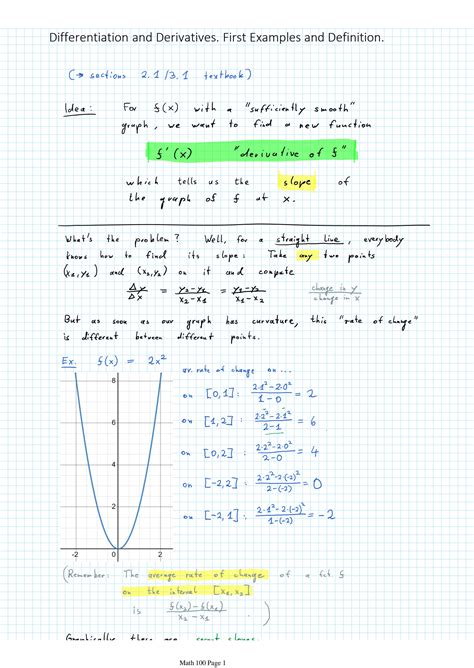 Differentiation and Derivatives. First Examples and Definition.
(→ sections 2.1/3.1 textbook)
Idea: For f(x) with a "sufficiently smooth"
graph, we want to find a new function
f'(x) "derivative of f"
which tells us the slope of
the graph of f at x.
What's the problem? Well, for a straight line, everybody
knows how to find its slope: Take any two points
(x₁,y₁) and (x₂,y₂) on it and compute
Δy/Δx = (y₂-y₁)/(x₂-x₁) = (y₁-y₂)/(x₁-x₂) change in y / change in x
But as soon as our graph has curvature, this "rate of change"
is different between different points.
Ex. f(x) = 2x²
av. rate of change on ...
on [0,1]: (2·1²-2·0²)/(1-0) = 2
on [1,2]: (2·2²-2·1²)/(2-1) = 6
on [0,2]: (2·2²-2·0²)/(2-0) = 4
on [-2,2]: (2·2²-2·(-2)²)/(2-(-2)) = 0
on [-2,1]: (2·1²-2·(-2)²)/(1-(-2)) = -2
8
6
4
2
-2 0 2
(Remember: The average rate of change of a fct. f
on the interval [x₁,x₂]
is (f(x₂)-f(x₁))/(x₂-x₁) .)
Graphically these are secant slopes.
Math 100 Page 1